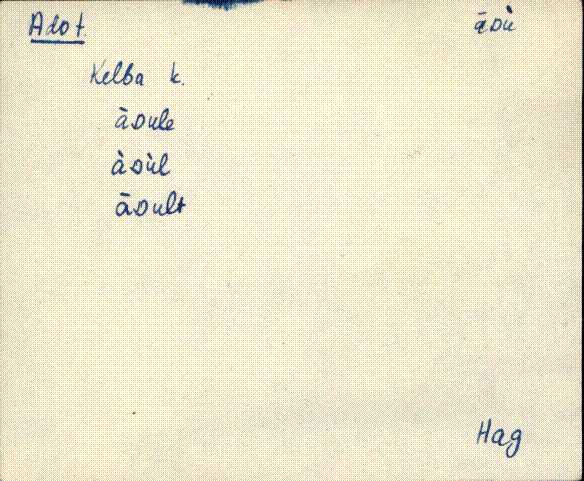 Alot. āsù
Kelba k.
àsule
àsùl
āsult
Hag